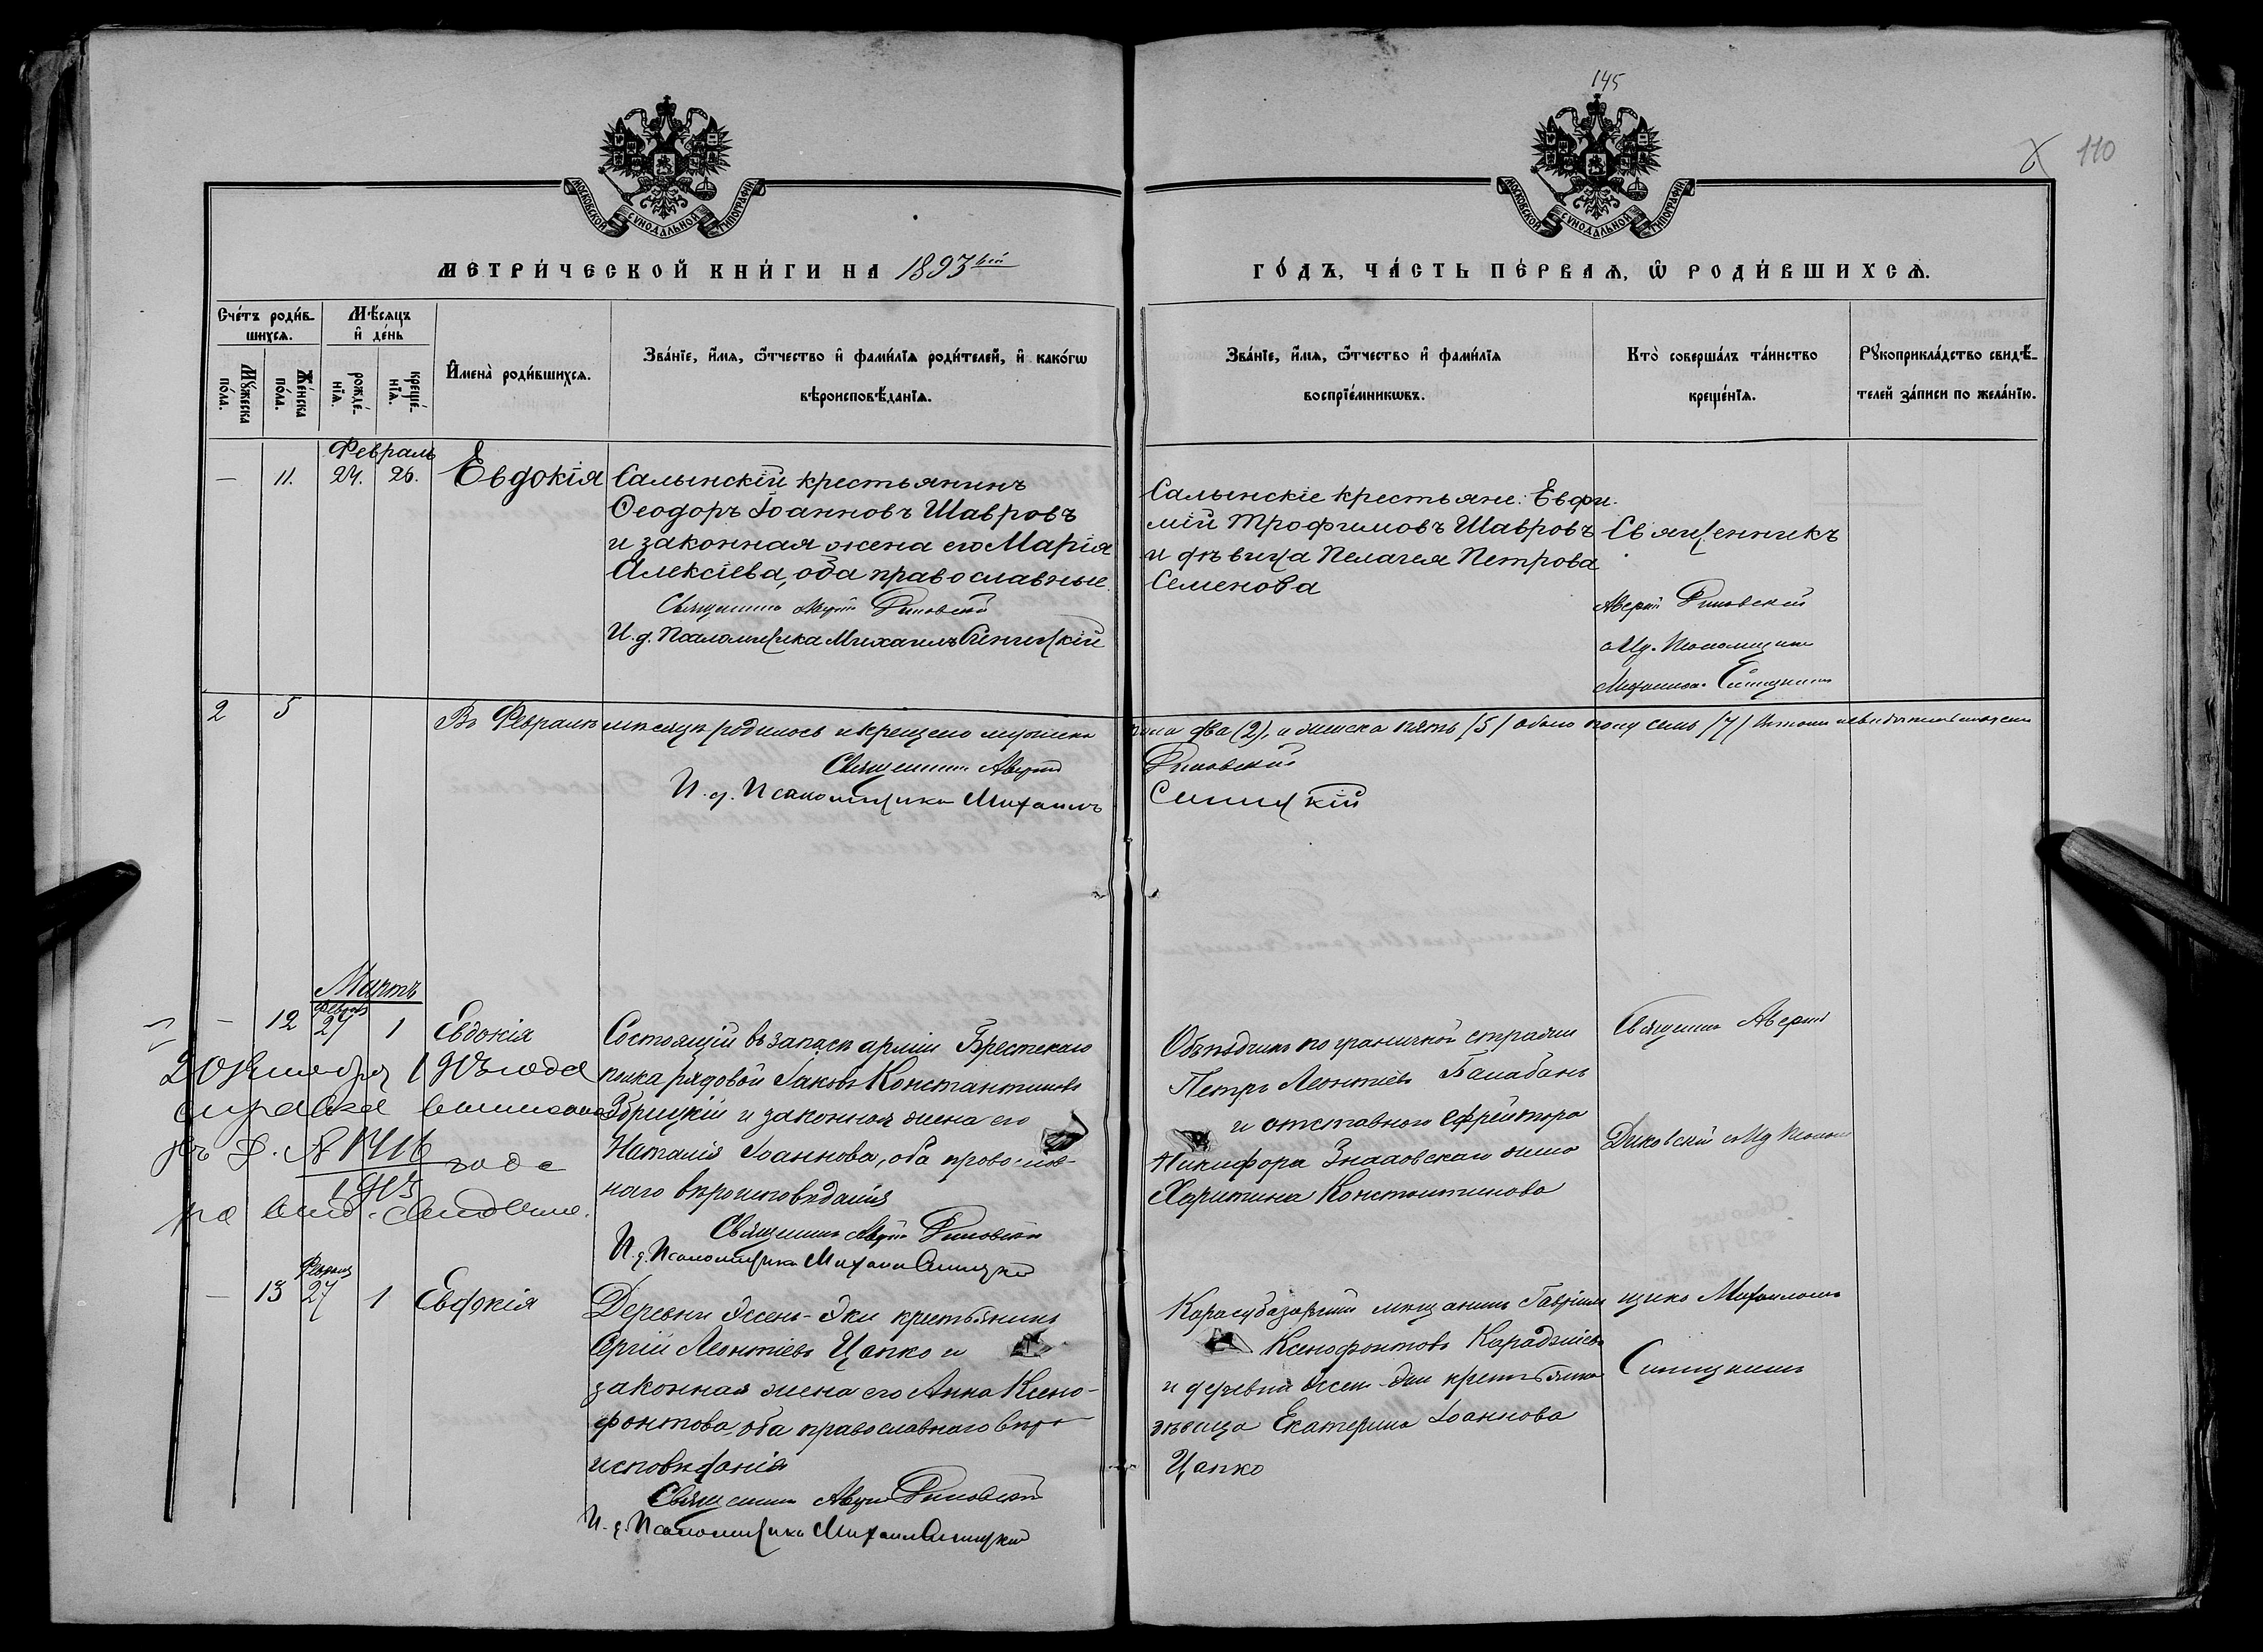 145
110
МОСКОВСКОЙ СѴНОДАЛЬНОЙ ТИПОГРАФІИ
МОСКОВСКОЙ СѴНОДАЛЬНОЙ ТИПОГРАФІИ
МЕТРИ́ЧЕСКОЙ КНИ́ГИ НА 1893 ый
ГО́ДЪ, ЧА́СТЬ ПЕ́РВАѦ, Ѿ РОДИ́ВШИХСѦ.
Сче́тъ роди́в-
шихсѧ.
Мꙋ́жеска
по́ла.
Же́нска
по́ла.
Мѣ́сѧцъ
и҆ де́нь
рожде́-
нїѧ.
креще́-
нїѧ.
И҆мена̀ роди́вшихсѧ.
Зва́нїе, и҆́мѧ, ѻ҆́тчество и҆ фами́лїѧ роди́телей, и҆ како́гѡ
вѣроисповѣ́данїѧ.
Зва́нїе, и҆́мѧ, ѻ҆́тчество и҆ фами́лїѧ
воспрїе́мникѡвъ.
Кто̀ соверша́лъ та́инство
креще́нїѧ.
Рꙋкоприкла́дство свидѣ́-
телей за́писи по жела́нїю.
Февраль
— 11. 24. 26. Евдокія
Салынскій крестьянинъ
Ѳеодоръ Іоанновъ Шавровъ
и законная жена его Марія
Алексіева, оба православные.
Священникъ Аверкій
И. д. Псаломщика Михаилъ Синицкій
Салынскіе крестьяне: Евфи-
мій Трофимовъ Шавровъ
и дѣвица Пелагея Петрова
Семенова
Священникъ
Аверкій
Псаломщик
Михаилом Синицкимъ
2 5
Въ Февралѣ мѣсяцѣ родилось и крещено мужска
пола два (2), и женска пять /5/ обоего полу семь /7/
Священникъ Аверкій
И. д. Псаломщика Михаилъ
Синицкій
Мартъ
— 12 Февраля 27 1 Евдокія
Состоящій въ запасѣ арміи Брестскаго
полка рядовой Іаковъ Константиновъ
Збрицкій и законная жена его
Наталія Іоаннова, оба православ-
наго вѣроисповѣданія
Священникъ Аверкій
И. д. Псаломщика Михаилъ Синицкій
Объѣздчикъ пограничной стражи
Петръ Леонтіевъ Балабанъ
и отставного ефрейтора
Никифора жена
Харитина Константинова
Священникъ Аверкій
1903 года
справка
№ 1416
1903
года
— 13 Февраля 27 1 Евдокія
Деревни Эссенъ-Эки крестьянинъ
Сергій Леонтіевъ Цапко и
законная жена его Анна Ксено-
фонтова, оба православнаго вѣро-
исповѣданія
Священникъ Аверкій
И. д. Псаломщика Михаилъ Синицкій
Карасубазарскій мѣщанинъ Гавріилъ
Ксенофонтовъ
и деревни Эссенъ-Эки крестьянка
дѣвица Екатерина Іоаннова
Цапко
щикъ Михаиломъ
Синицкимъ